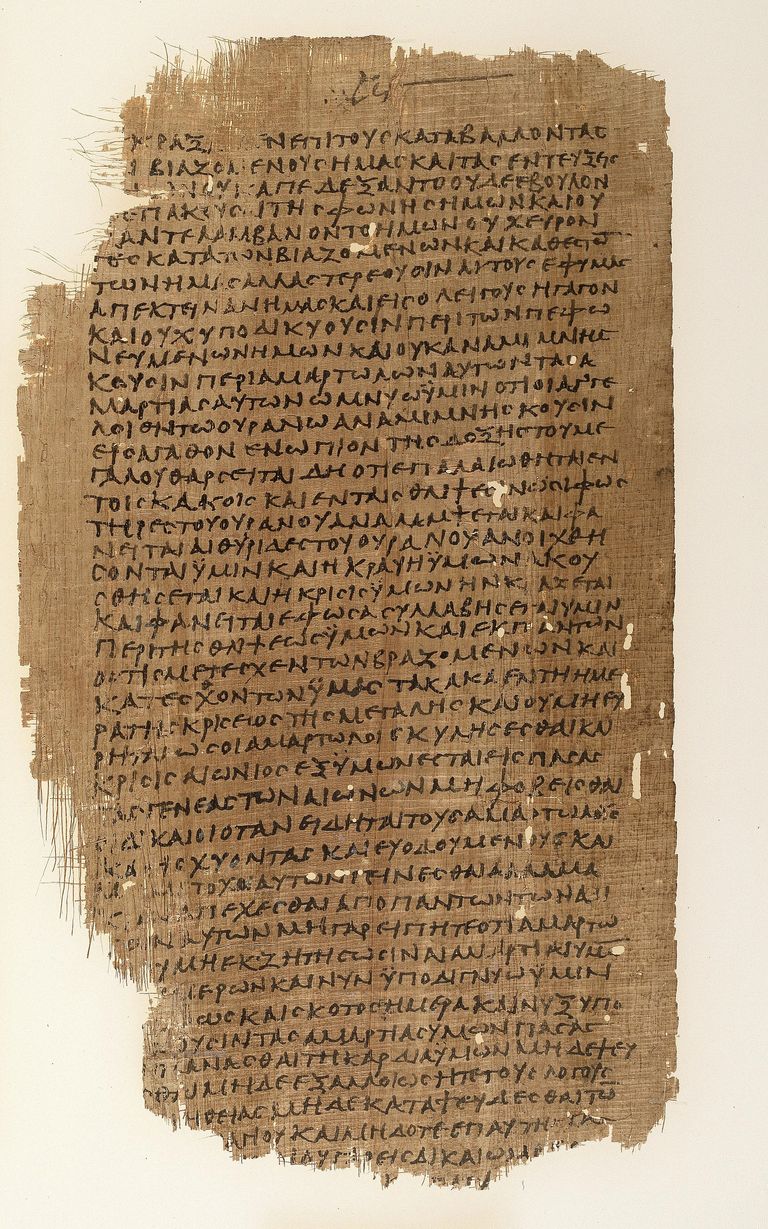 ΕΠΙΤΟΥϹΚΑΤΑΒΑΛΛΟΝΤΑϹ
ΒΙΑΖΟΜΕΝΟΥϹΗΜΑϹΚΑΙΤΑϹΕΝΤΕΥΞΕΙϹ
ΑΠΕΔΕΞΑΝΤΟΟΥΔΕΕΒΟΥΛΟΝ
ΤΗϹΦΩΝΗϹΗΜΩΝΚΑΙΟΥ
ΑΝΤΕΛΑΜΒΑΝΟΝΤΟΗΜΩΝΟΥΧΕΥΡΟΝ
ΚΑΤΑΤΩΝΒΙΑΖΟΜΕΝΩΝΚΑΙΚΑΘΕϹΤΩ
ΤΩΝΗΜΑϹΑΛΛΑϹΤΕΡΕΟΥϹΙΝΑΥΤΟΥϹΕΦΥΜΑϹ
ΑΠΕΚΤΕΙΝΑΝΗΜΑϹΚΑΙΕΙϹΟΛΕΙΓΟΥϹΗΓΑΓΟΝ
ΚΑΙΟΥΧΥΠΟΔΙΚΥΟΥϹΙΝΠΕΡΙΤΩΝΠΕΦΩ
ΝΕΥΜΕΝΩΝΗΜΩΝΚΑΙΟΥΚΑΝΑΜΙΜΝΗϹ
ΚΟΥϹΙΝΠΕΡΙΑΜΑΡΤΩΛΩΝΑΥΤΩΝΤΑϹΑ
ΜΑΡΤΙΑϹΑΥΤΩΝΩΜΝΥΩΫΜΙΝΟΤΙΟΙΑΓΓΕ
ΛΟΙΕΝΤΩΟΥΡΑΝΩΑΝΑΜΙΜΝΗϹΚΟΥϹΙΝ
ΕΙϹΑΓΑΘΟΝΕΝΩΠΙΟΝΤΗϹΔΟΞΗϹΤΟΥΜΕ
ΓΑΛΟΥΘΑΡϹΕΙΤΑΙΔΗΟΤΙΕΠΑΛΑΙΩΘΗΤΑΙΕΝ
ΤΟΙϹΚΑΚΟΙϹΚΑΙΕΝΤΑΙϹΘΛΙΨΕϹΙΝΩϹΙΦΩϹ
ΤΗΡΕϹΤΟΥΟΥΡΑΝΟΥΑΝΑΛΑΜΨΕΤΑΙΚΑΙΦΑ
ΝΕΙΤΑΙΑΙΘΥΡΙΔΕϹΤΟΥΟΥΡΑΝΟΥΑΝΟΙΧΘΗ
ϹΟΝΤΑΙΫΜΙΝΚΑΙΗΚΡΑΥΗΫΜΩΝΑΚΟΥ
ϹΘΗϹΕΤΑΙΚΑΙΗΚΡΙϹΙϹΫΜΩΝΗΝΚΡΑΖΕΤΑΙ
ΚΑΙΦΑΝΕΙΤΑΙΕΦΩϹΑϹΥΛΛΑΒΗϹΕΤΑΙΥΜΙΝ
ΠΕΡΙΤΗϹΘΛΙΨΕΩϹΫΜΩΝΚΑΙΕΚΠΑΝΤΩΝ
ΟϹΤΙϹΜΕΤΕϹΧΕΝΤΩΝΒΡΑΖΟΜΕΝΩΝΚΑΙ
ΚΑΤΕϹΧΟΝΤΩΝΫΜΑϹΤΑΚΑΚΑΕΝΤΗΗΜΕ
ΡΑΤΗϹΚΡΙϹΕΙΩϹΤΗϹΜΕΓΑΛΗϹΚΑΙΟΥΜΗΕΥ
ΡΗΤΑΙΩϹΟΙΑΜΑΡΤΩΛΟΙϹΚΥΛΗϹΕϹΘΑΙΚΑΙ
ΚΡΙϹΙϹΑΙΩΝΙΟϹΕΞΫΜΩΝΕϹΤΑΙΕΙϹΠΑϹΑϹ
ΤΑϹΓΕΝΕΑϹΤΩΝΑΙΩΝΩΝΜΗΦΟΒΕΙϹΘΑΙ
ΔΙΚΑΙΟΙΟΤΑΝΕΙΔΗΤΑΙΤΟΥϹΑΜΑΡΤΩΛΟΥϹ
ΚΑΤΙϹΧΥΟΝΤΑϹΚΑΙΕΥΟΔΟΥΜΕΝΟΥϹΚΑΙ
ΜΕΤΟΧΟΙΑΥΤΩΝΓΕΙΝΕϹΘΑΙΑΛΛΑΜΑ
ΑΠΕΧΕϹΘΑΙΑΠΟΠΑΝΤΩΝΤΩΝΑΔΙ
ΑΥΤΩΝΜΗΓΑΡΕΙΠΗΤΕΟΤΙΑΜΑΡΤΩ
ΥΜΗΕΚΖΗΤΗϹΩϹΙΝΑΙΑΜΑΡΤΙΑΙΥΜΩ
ΗΜΕΡΩΝΚΑΙΝΥΝΫΠΟΔΙΓΝΥΩΫΜΙΝ
ΦΩϹΚΑΙϹΚΟΤΟϹΗΜΕΡΑΚΑΙΝΥΞΥΠΟ
ΟΥϹΙΝΤΑϹΑΜΑΡΤΙΑϹΥΜΩΝΠΑϹΑϹ
ΠΛΑΝΑϹΘΑΙΤΗΚΑΡΔΙΑΫΜΩΝΜΗΔΕΨΕΥ
ΜΗΔΕΕΞΑΛΛΟΙΩϹΗΤΕΤΟΥϹΛΟΓΟΥϹ
ΗΘΕΙΑϹΜΗΔΕΚΑΤΑΨΕΥΔΕϹΘΑΙΤΩ
ΑΓΙΟΥΚΑΙΜΗΔΟΤΕΕΠΑΥΤΗ
ΔΙΚΑΙΩΜΑ